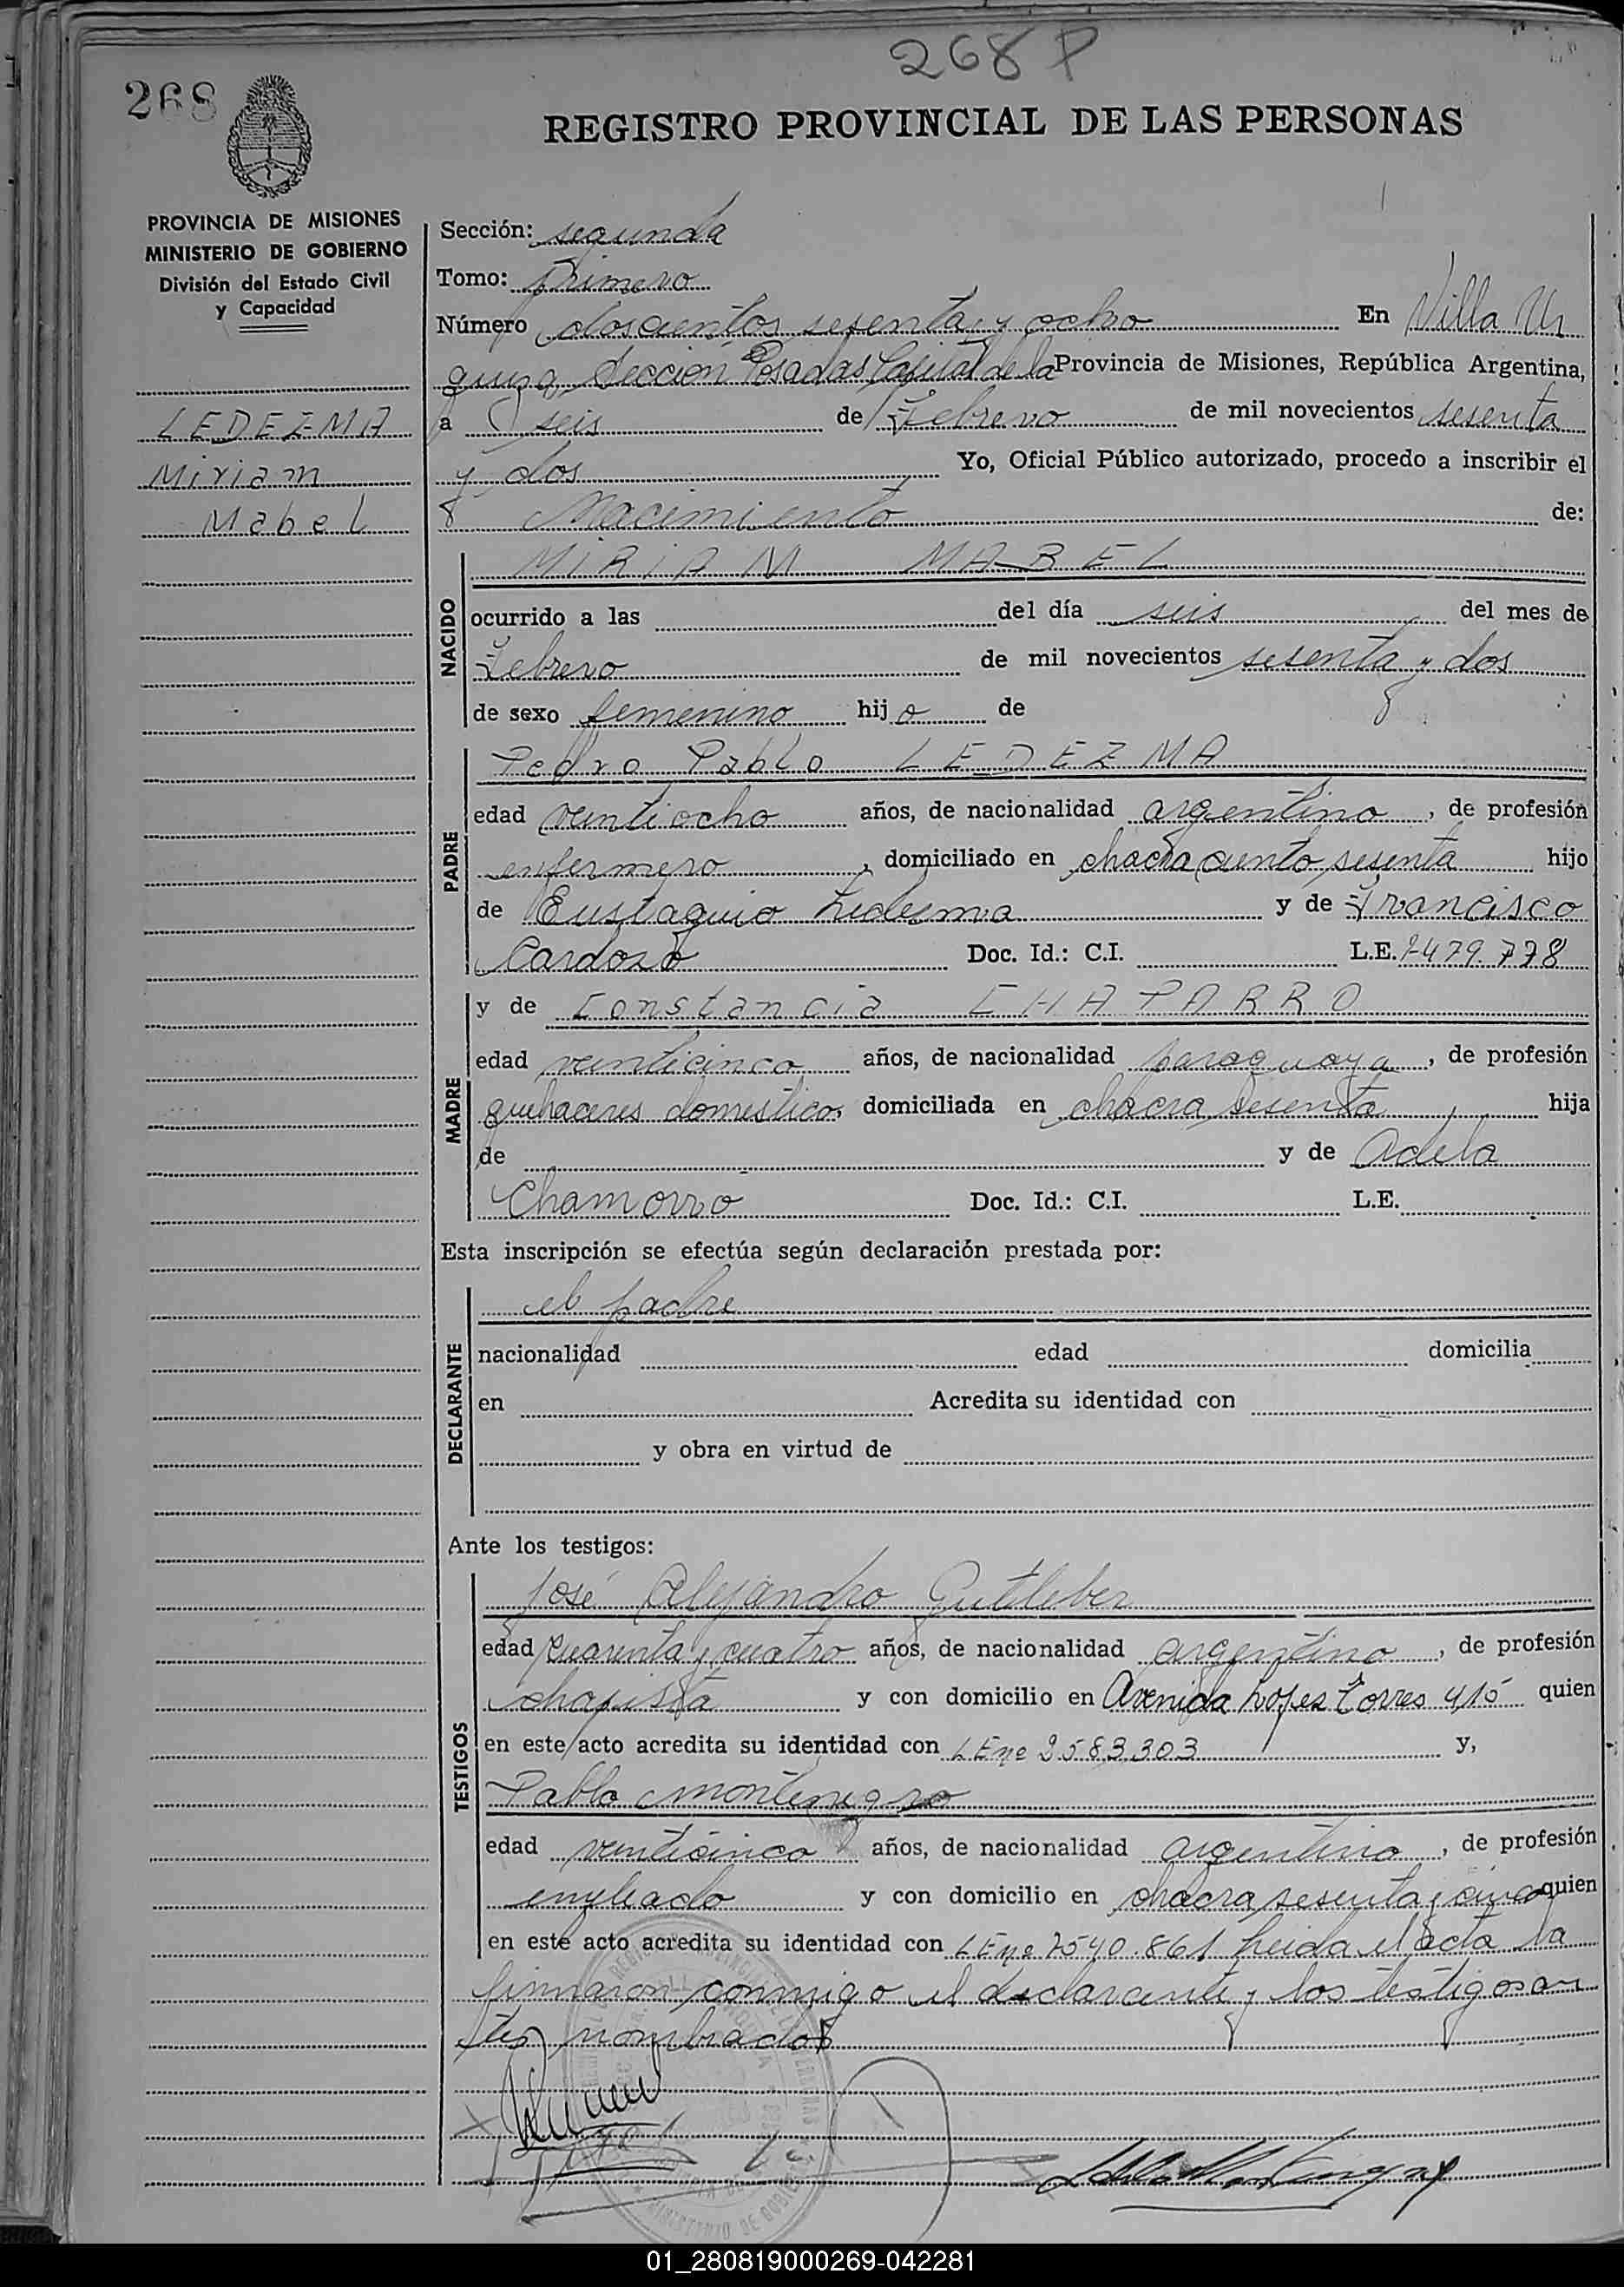 268 P
268
REGISTRO PROVINCIAL DE LAS PERSONAS
PROVINCIA DE MISIONES
MINISTERIO DE GOBIERNO
División del Estado Civil
y Capacidad
LEDEZMA
Miriam
Mabel
Sección: segunda
Tomo: primero
Número doscientos sesenta y ocho En Villa Ur
quiza, Sección Posadas Capital de la Provincia de Misiones, República Argentina,
a seis de Febrero de mil novecientos sesenta
y dos Yo, Oficial Público autorizado, procedo a inscribir el
Nacimiento de:
NACIDO
MIRIAM MABEL
ocurrido a las del día seis del mes de
Febrero de mil novecientos sesenta y dos
de sexo femenino hijo de
PADRE
Pedro Pablo LEDEZMA
edad veintiocho años, de nacionalidad argentino, de profesión
enfermero, domiciliado en chacra ciento sesenta hijo
de Eustaquio Ledezma y de Francisco
Cardozo Doc. Id.: C.I. L.E. 7479.778
MADRE
y de Constancia CHAPARRO
edad veinticinco años, de nacionalidad paraguaya, de profesión
quehaceres domesticos domiciliada en chacra sesenta hija
de y de Adela
Chamorro Doc. Id.: C.I. L.E.
Esta inscripción se efectúa según declaración prestada por:
DECLARANTE
el padre
nacionalidad edad domicilia
en Acredita su identidad con
y obra en virtud de
Ante los testigos:
TESTIGOS
José Alejandro Gutleber
edad cuarenta y cuatro años, de nacionalidad argentino, de profesión
chapista y con domicilio en Avenida Lopez torres 415 quien
en este acto acredita su identidad con LE nº 2583303 y,
Pablo Montenegro
edad veinticinco años, de nacionalidad argentino, de profesión
empleado y con domicilio en chacra sesenta y cinco quien
en este acto acredita su identidad con LE nº 7540.861 Leida el acta la
firmaron conmigo el declarante y los testigos an
tes nombrados
01_280819000269-042281